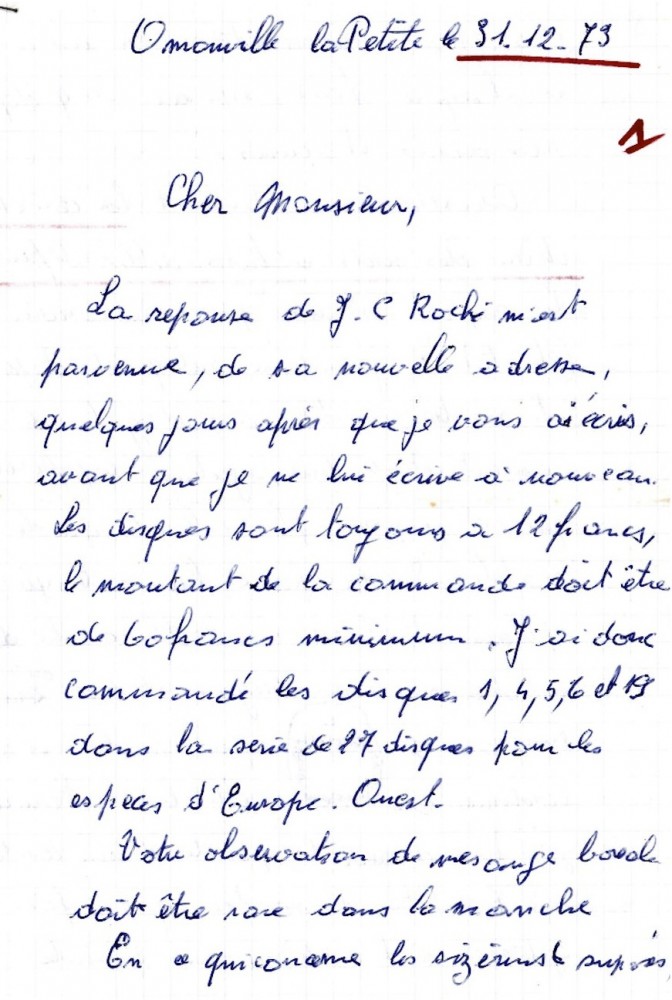 Omonville la Petite le 31.12-73
1
Cher Monsieur,
La reponse de J. C Roché m'est
parvenue, de sa nouvelle adresse,
quelques jours après que je vous ai écris,
avant que je ne lui écrive à nouveau.
Les disques sont toujours a 12 francs,
le montant de la commande doit être
de 60 francs minimum. J'ai donc
commandé les disques 1, 4, 5, 6 et 19
dans la serie de 27 disques pour les
especes d'Europe. Ouest.
Votre observation de mesange boreale
doit être rare dans la manche
En ce qui concerne les sizerins